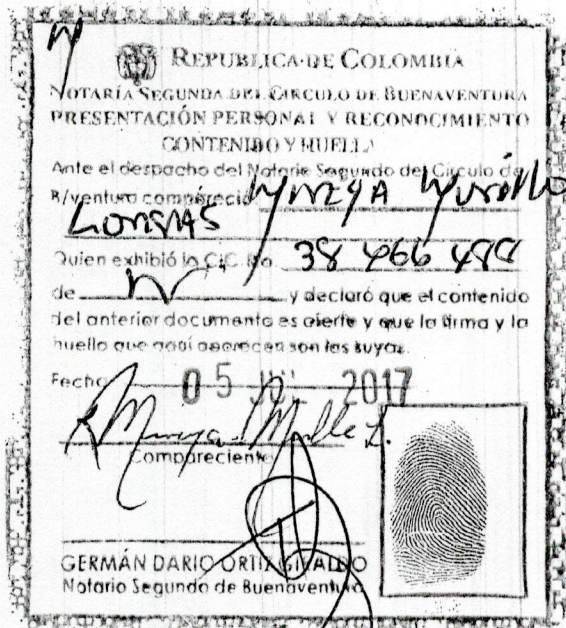 REPUBLICA DE COLOMBIA
NOTARÍA SEGUNDA DEL CIRCULO DE BUENAVENTURA
PRESENTACIÓN PERSONAL Y RECONOCIMIENTO
CONTENIDO Y HUELLA
Ante el despacho del Notario Segundo del Círculo de
B/ventura compareció
Quien exhibió la C.C. No. 38 466 48
de y declaró que el contenido
del anterior documento es cierto y que la firma y la
huella que aquí aparecen son las suyas.
Fecha 05 2017
Compareciente
GERMÁN DARIO ORTIZ GIRALDO
Notario Segundo de Buenaventura